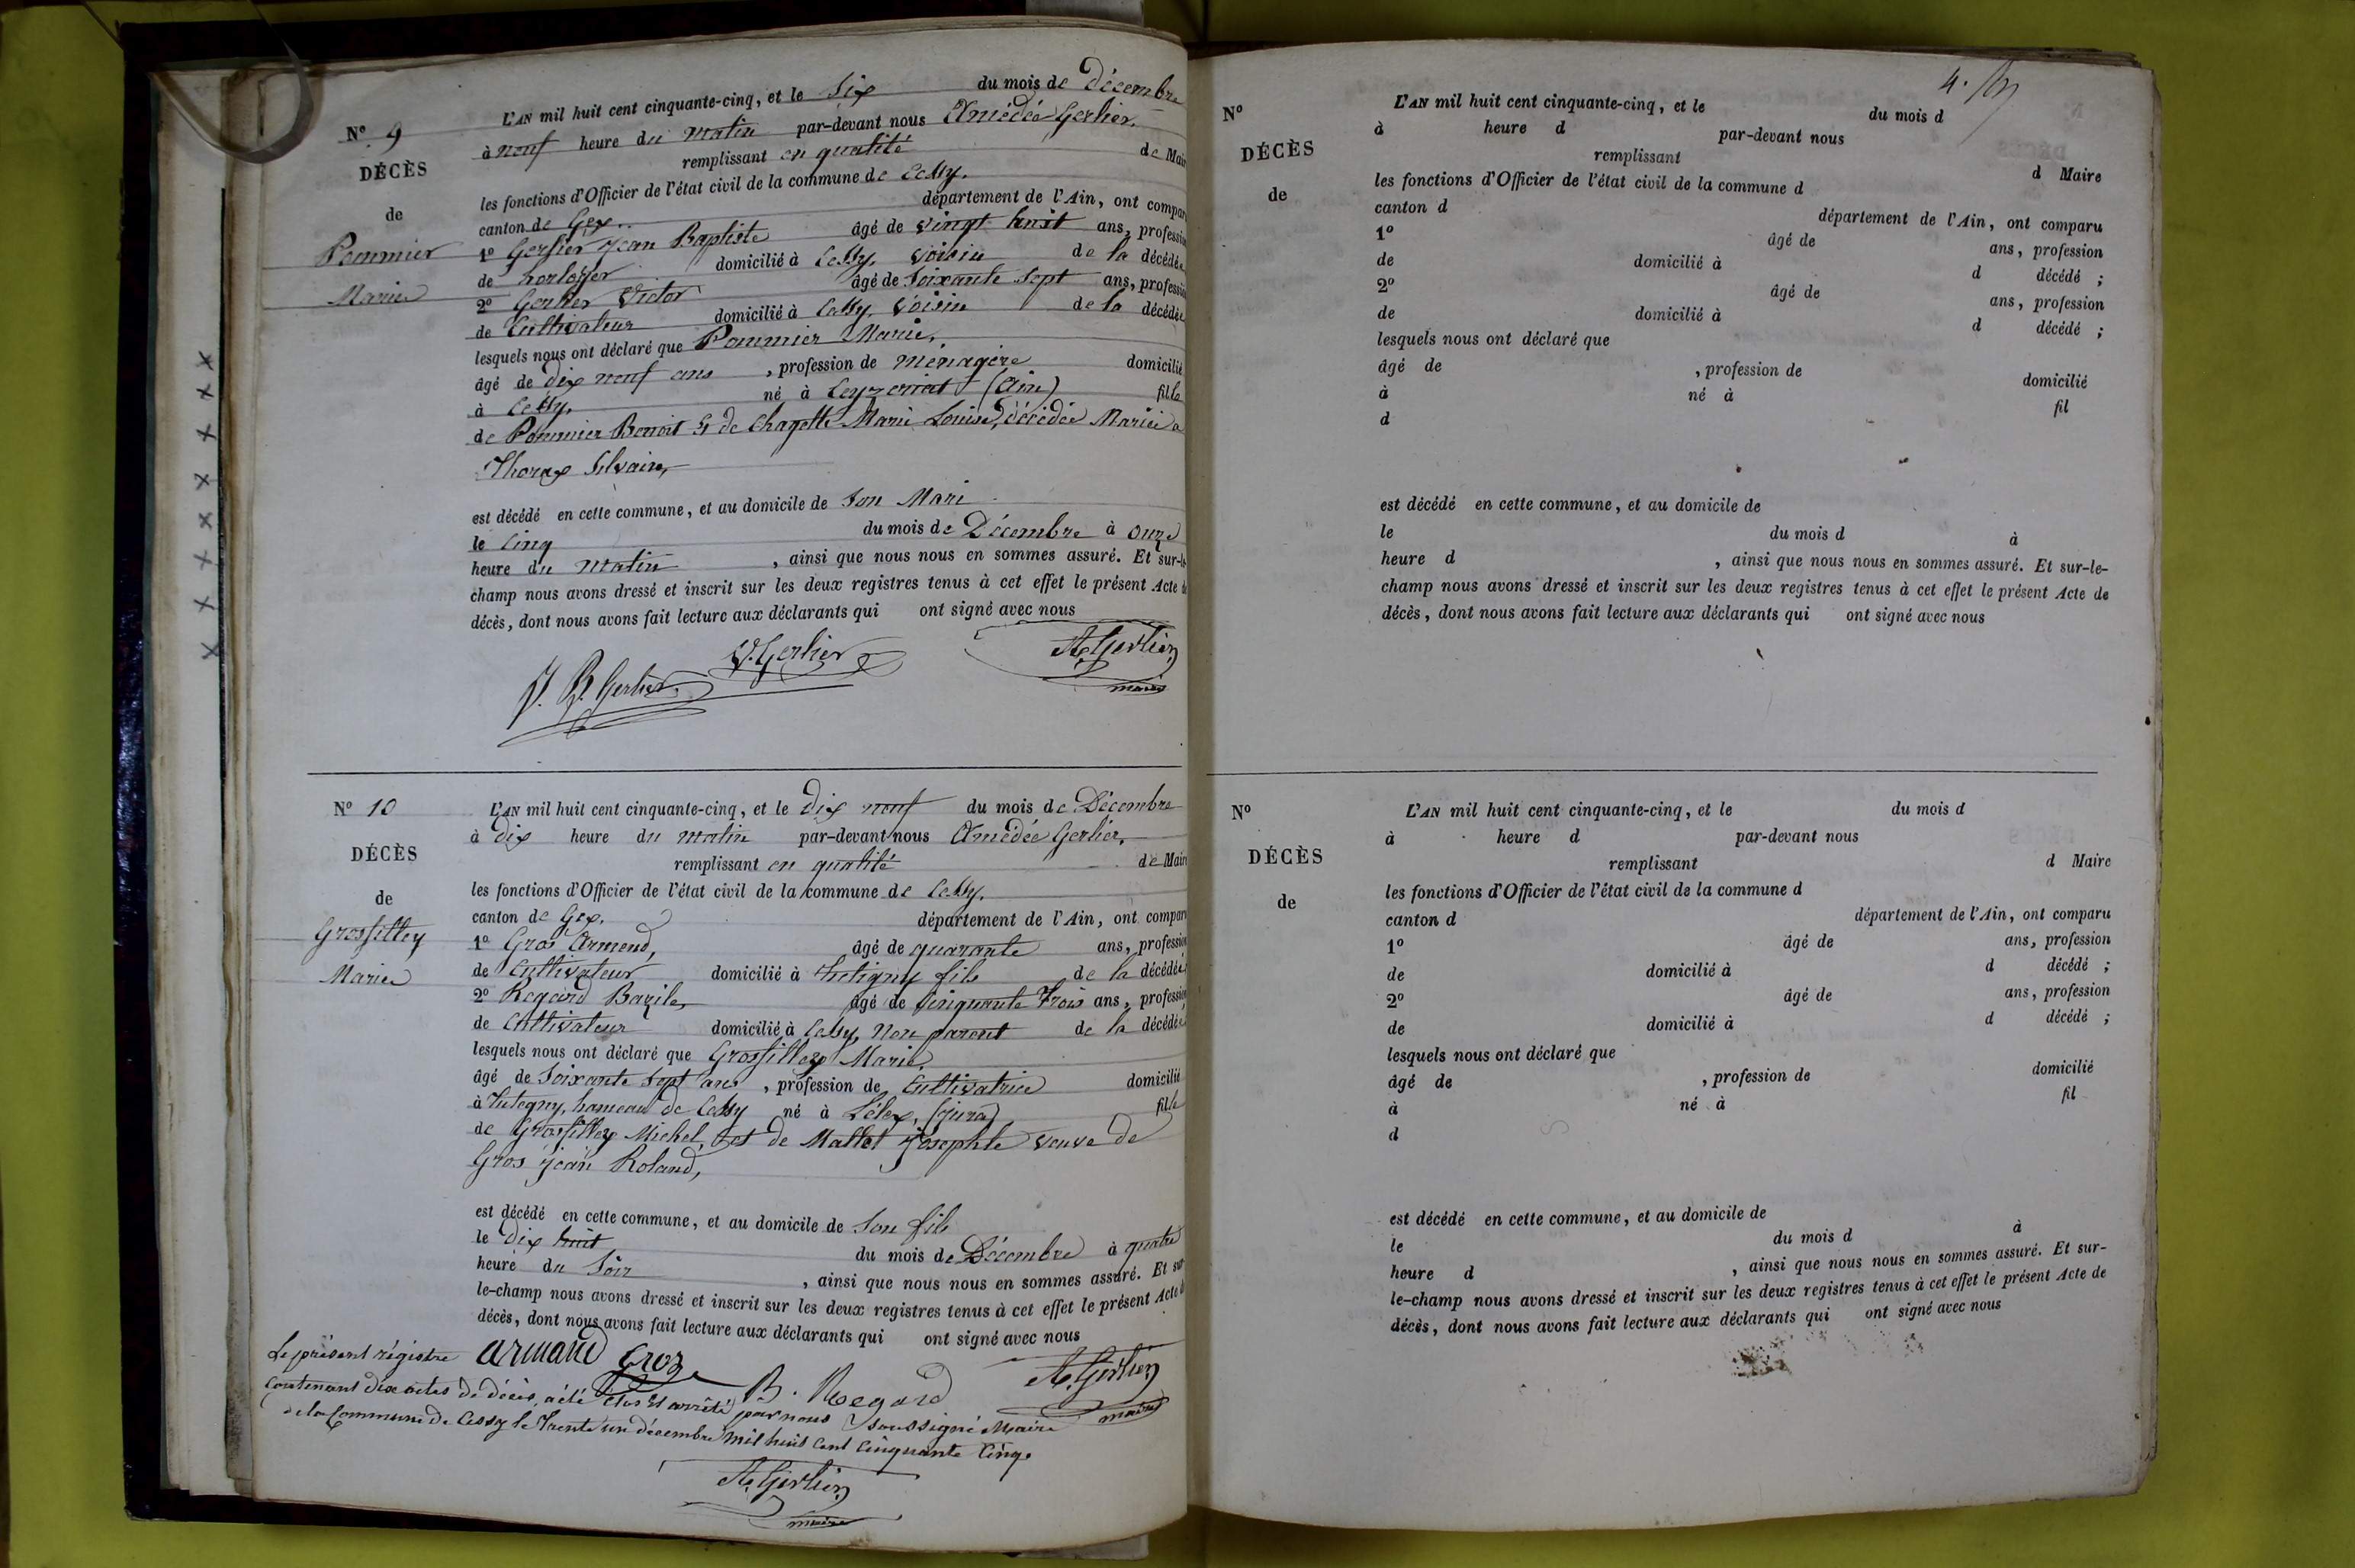 N° 9
DÉCÈS
de
Pommier
Marie
L'AN mil huit cent cinquante-cinq, et le Six du mois de Décembre
à neuf heure du matin par-devant nous Amédée Gerlier,
remplissant en qualité de Mair
les fonctions d'Officier de l'état civil de la commune de Cessy.
canton de Gex. département de l'Ain, ont compar
1° Gerlier Jean Baptiste âgé de vingt huit ans, professio
de horloger domicilié à Cessy, voisin de la décédée
2° Gerlier Victor âgé de Soixante Sept ans, professio
de Cultivateur domicilié à Cessy, voisin de la décédée
lesquels nous ont déclaré que Pommier Marie,
âgé de dix neuf ans , profession de ménagère domicilié
à Cessy, né à Ceyzeriat (Ain) fille
de Pommier Benoit & de Chagette Marie Louise, décédée Mariée a
Thorax Silvain,
est décédé en cette commune, et au domicile de Son Mari
le Cinq du mois de Décembre à onze
heure du matin , ainsi que nous nous en sommes assuré. Et sur-le
champ nous avons dressé et inscrit sur les deux registres tenus à cet effet le présent Acte de
décès, dont nous avons fait lecture aux déclarants qui ont signé avec nous
V. Gerlier A. Gerlier
J. B. Gerlier maire
N° 10
DÉCÈS
de
Grossilley
Marie
L'AN mil huit cent cinquante-cinq, et le Dix neuf du mois de Décembre
à Dix heure du matin par-devant nous Amédée Gerlier,
remplissant en qualité de Mair
les fonctions d'Officier de l'état civil de la commune de Cessy.
canton de Gex. département de l'Ain, ont compar
1° Gros Armend, âgé de quarante ans, professio
de Cultivateur domicilié à Tutigny fils de la décédée
2° Regard Bazile, âgé de Cinquante Trois ans, professio
de Cultivateur domicilié à Cessy, Non parent de la décédée
lesquels nous ont déclaré que Grossilley Marie,
âgé de Soixante Sept ans , profession de Cultivatrice domicilié
à Tutegny, hameau de Cessy né à Lélex, (Jura) fille
de Grossilley Michel, et de Mallet Josephte veuve de
Gros Jean Roland,
est décédé en cette commune, et au domicile de Son fils
le Dix huit du mois de Décembre à quatre
heure du Soir , ainsi que nous nous en sommes assuré. Et sur
le-champ nous avons dressé et inscrit sur les deux registres tenus à cet effet le présent Acte d
décès, dont nous avons fait lecture aux déclarants qui ont signé avec nous
armand Groz B. Regard A. Gerlier
maire
Le présent régistre
contenant dix actes de décès, a été clos et arrêté par nous soussigné Maire
de la Commune de Cessy le Trente un décembre mil huit cent cinquante Cinq.
A. Gerlier
maire
4.
N°
DÉCÈS
de
L'AN mil huit cent cinquante-cinq, et le du mois d
à heure d par-devant nous
remplissant d Maire
les fonctions d'Officier de l'état civil de la commune d
canton d département de l'Ain, ont comparu
1° âgé de ans, profession
de domicilié à d décédé ;
2° âgé de ans, profession
de domicilié à d décédé ;
lesquels nous ont déclaré que
âgé de , profession de domicilié
à né à fil
d
est décédé en cette commune, et au domicile de
le du mois d à
heure d , ainsi que nous nous en sommes assuré. Et sur-le-
champ nous avons dressé et inscrit sur les deux registres tenus à cet effet le présent Acte de
décès, dont nous avons fait lecture aux déclarants qui ont signé avec nous
N°
DÉCÈS
de
L'AN mil huit cent cinquante-cinq, et le du mois d
à heure d par-devant nous
remplissant d Maire
les fonctions d'Officier de l'état civil de la commune d
canton d département de l'Ain, ont comparu
1° âgé de ans, profession
de domicilié à d décédé ;
2° âgé de ans, profession
de domicilié à d décédé ;
lesquels nous ont déclaré que
âgé de , profession de domicilié
à né à fil
d
est décédé en cette commune, et au domicile de
le du mois d à
heure d , ainsi que nous nous en sommes assuré. Et sur-
le-champ nous avons dressé et inscrit sur les deux registres tenus à cet effet le présent Acte de
décès, dont nous avons fait lecture aux déclarants qui ont signé avec nous